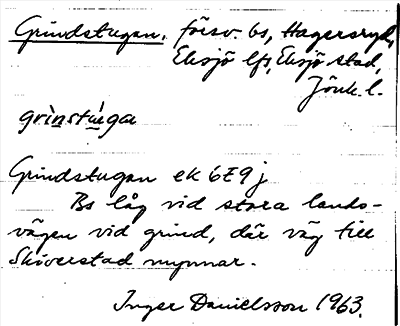 Grindstugan, försv. bs, Hagersryd,
Eksjö lfs, Eksjö stad,
Jönk. l.
grìnstu̇́gan
Grindstugan ek 6E9j
Bs låg vid stora lands-
vägen vid grind, där väg till
Skiverstad mynnar.
Inger Danielsson 1963.